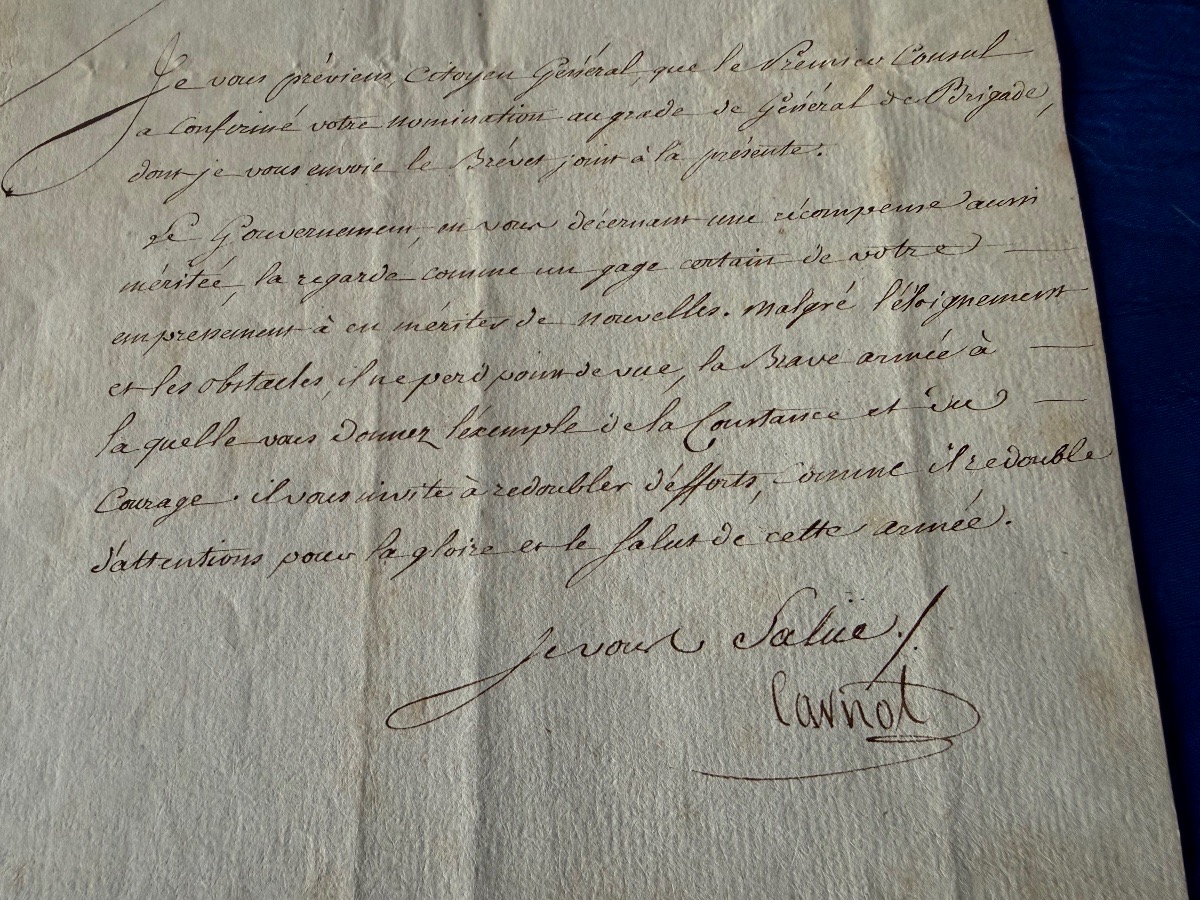 Je vous préviens, Citoyen Général, que le Premier Consul
a confirmé votre nomination au grade de Général de Brigade,
dont je vous envoie le Brévet joint à la présente.
Le Gouvernement, en vous décernant une récompense aussi
méritée, la regarde comme un gage certain de votre
empressement à en mériter de nouvelles. Malgré l'éloignement
et les obstacles, il ne perd point de vue, la Brave armée à
la quelle vous donnez l'éxemple de la Constance et du
Courage. il vous invite à redoubler d'éfforts, comme il redouble
d'attentions pour la gloire et le Salut de cette armée.
Je vous Salüe ./.
Carnot